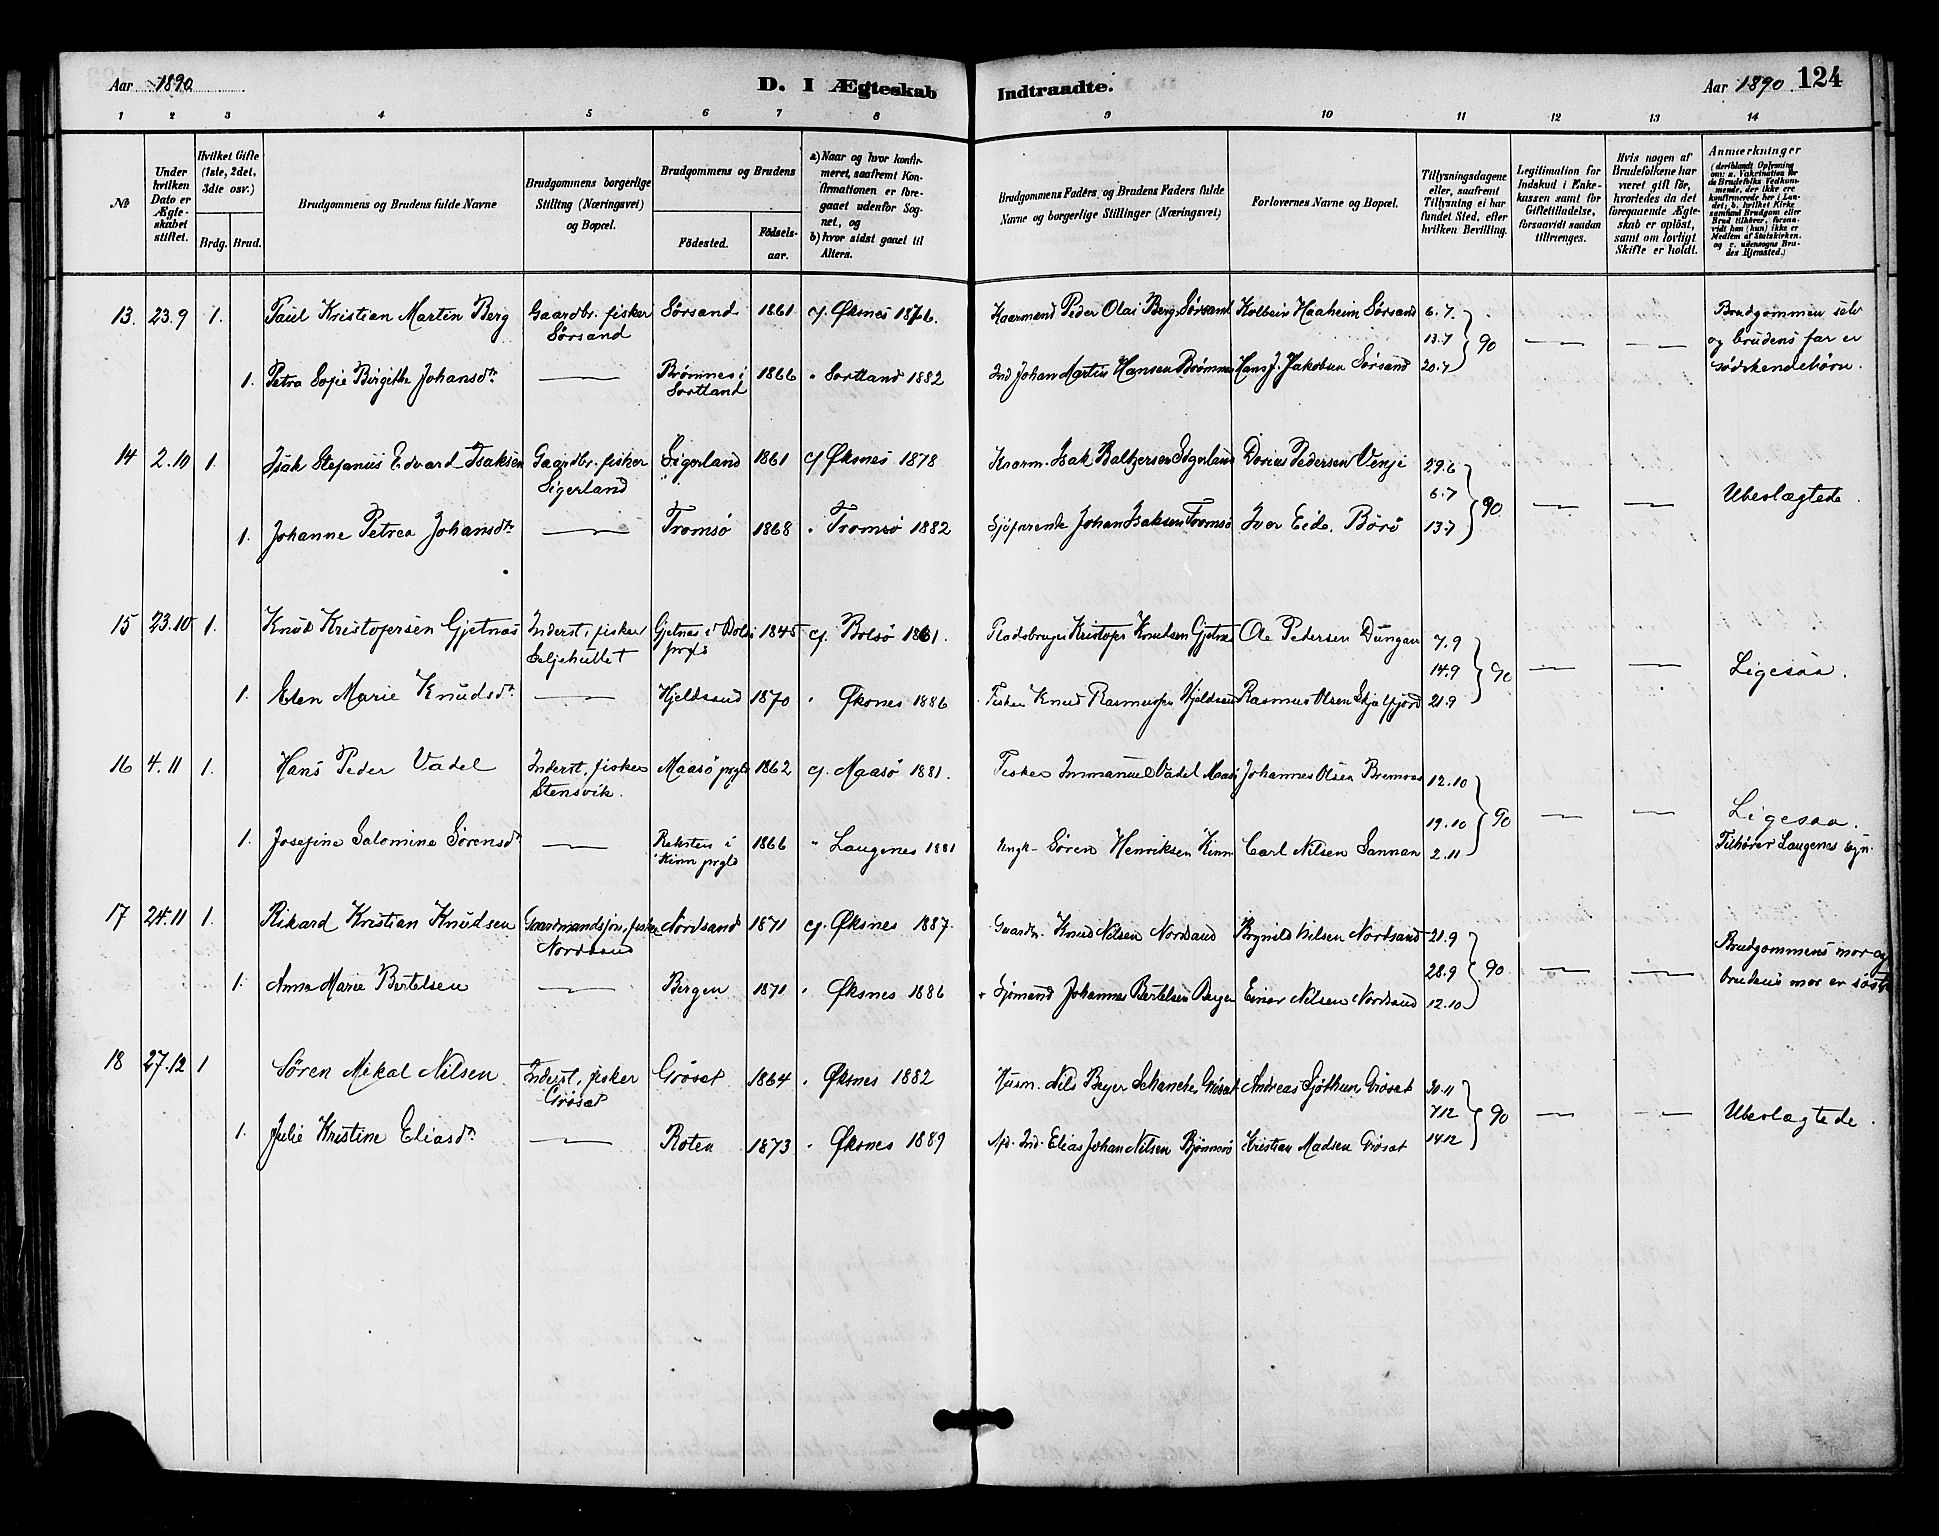 Aar 1890
D. I Ægteskab Indtraadte.
Aar 1890 124
1 2 3 4 5 6 7 8 9 10 11 12 13 14
No
Under hvilken Dato er Ægteskabet stiftet.
Hvilket Gifte (1ste, 2det, 3die osv.)
Brdg. Brud.
Brudgommens og Brudens fulde Navne
Brudgommens borgerlige Stilling (Næringsvei) og Bopæl.
Brudgommens og Brudens
Födested. Födselsaar.
a) Naar og hvor konfirmeret, saafremt Konfirmationen er foregaaet udenfor Sognet, og
b) hvor sidst gaaet til Alters.
Brudgommens Faders og Brudens Faders fulde Navne og borgerlige Stillinger (Næringsvei)
Forlovernes Navne og Bopæl.
Tillysningsdagene eller, saafremt Tillysning ei har fundet Sted, efter hvilken Bevilling.
Legitimation for Indskud i Enkekassen samt for Giftetilladelse, forsaavidt saadan tiltrænges.
Hvis nogen af Brudefolkene har været gift för, hvorledes da det foregaaende Ægteskab er oplöst, samt om lovligt Skifte er holdt.
Anmærkninger (deriblandt Oplysning om: a. Vakcination for de Brudefolks Vedkommende, der ikke ere konfirmerede her i Landet; b. hvilket Kirkesamfund Brudgom eller Brud tilhörer, forsaavidt han (hun) ikke er Medlem af Statskirken. og c. udensogns Brudes Hjemsted.)
13. 23.9 1. Paul Kristian Martin Berg Gaardbr. fisker Sørsand 1861 cf. Øksnes 1876. Kaarmand Peder Olai Berg Sørsand Kolbein Haaheim Sørsand 6.7 Brudgommen selv
Sørsand 13.7 90 — — og brudens far er
1. Petra Sofie Bergithe Johansdt. — Brømnes i 1866 " Sortland 1882 Ind Johan Martin Hansen Brømnes Hans J. Jakobsen Sørsand 20.7 södskendebörn.
Sortland
14 2.10 1. Isak Stefanus Edvard Isaksen Gaardbr. fisker Sigerland 1861 cf Øksnes 1878 Kaarm. Isak Baltzersen Sigerland Dorius Pedersen Venje 29.6
Sigerland 6.7 90 — — Ubeslægtede.
1. Johanne Petrea Johansdt. — Tromsö 1868 " Tromsö 1882 Sjöfarende Johan Isaksen Tromsö Ivar Eide, Börö 13.7
15 23.10 1. Knud Kristofersen Gjetnæs Inderst, fisker Gjetnæs i Bolsö 1845 cf. Bolsö 1861. Pladsbruger Kristofer Knudsen Gjetnæs Ole Pedersen Dungan 7.9
Seljehullet prgld 14.9 90 — — Ligesaa.
1. Elen Marie Knudsdt. — Hjeldsand 1870 " Øksnes 1886 Fisker Knud Rasmussen Hjeldsand Rasmus Olsen Skjelfjord 21.9
16 4.11 1. Hans Peder Vadel Inderst, fisker Maasö prgld 1862 cf. Maasö 1881. Fisker Immanuel Vadel Maasö Johannes Olsen Bremnes 12.10
Stensvik. 19.10 90 — — Ligesaa.
1. Josefine Salomine Sörensdt. — Reksten i 1866 " Langenes 1881 Ungk. Sören Henriksen Kinn Carl Nilsen Sannan 2.11 Tilhörer Langenes sogn.
Kinn prgld
17 24.11 1. Rikard Kristian Knudsen Gaardmandssön, fisker Nordsand 1871 cf. Øksnes 1887. Gaardm. Knud Nilsen Nordsand Brynild Nilsen Nordsand 21.9
Nordsand 28.9 90 — — Brudgommens mor og
1. Anna Marie Bertelsen — Bergen 1871 " Øksnes 1886 + Sjömand Johannes Bertelsen Bergen Einar Nilsen Nordsand 12.10 brudens mor er söstre
18 27.12 1 Sören Mikal Nilsen Inderst, fisker Gröset 1864 " Øksnes 1882 Husm. Nils Beyer Schanche Gröset Andreas Sjöthun Gröset 30.11
Gröset 7.12 90 — — Ubeslægtede.
1. Julie Kristine Eliasdt. — Roten 1873 " Øksnes 1889 Ind. Elias Johan Nilsen Björnerö Kristian Madsen Gröset 14.12